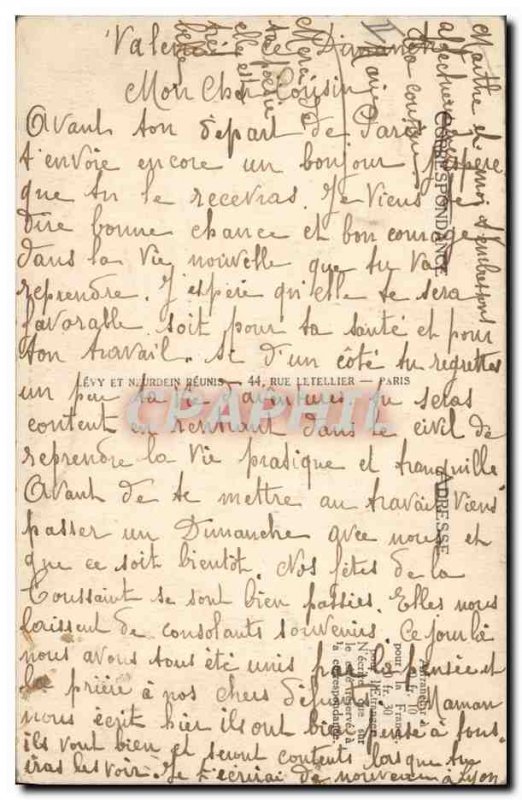 Valence ce Dimanche
Mon Cher Cousin
Avant ton départ de Paris
t'envoie encore un bonjour j'espère
que tu le recevras. Je viens te
dire bonne chance et bon courage
dans la vie nouvelle que tu vas
reprendre. J'espère qu'elle te sera
favorable soit pour ta santé et pour
ton travail. Si d'un côté tu regrettes
LÉVY ET NEURDEIN RÉUNIS — 44, RUE LETELLIER — PARIS
un peu ta vie aventureuse tu seras
CPAPHIL
content en rentrant dans le civil de
reprendre la vie pratique et tranquille
Avant de te mettre au travail viens
passer un Dimanche avec nous et
que ce soit bientôt. Nos fêtes de la
Toussaint se sont bien passées. Elles nous
laissent de consolants souvenirs. Ce jour là
nous avons tous été unis par la pensée et
la prière à nos chers défunts. Maman
nous écrit hier ils ont bien pensé à tous.
ils vont bien et seront contents lorsque tu
iras les voir. Je t'écrirai de nouveau à Lyon
Marthe et moi t'embrassons
affectueusement
Ta cousine
Marie
CORRESPONDANCE
ADRESSE
Affranchir à
0 fr. 10
pour la France,
0 fr. 30
pour l'Étranger.
N'écrire que sur
le côté réservé à
la correspondance.